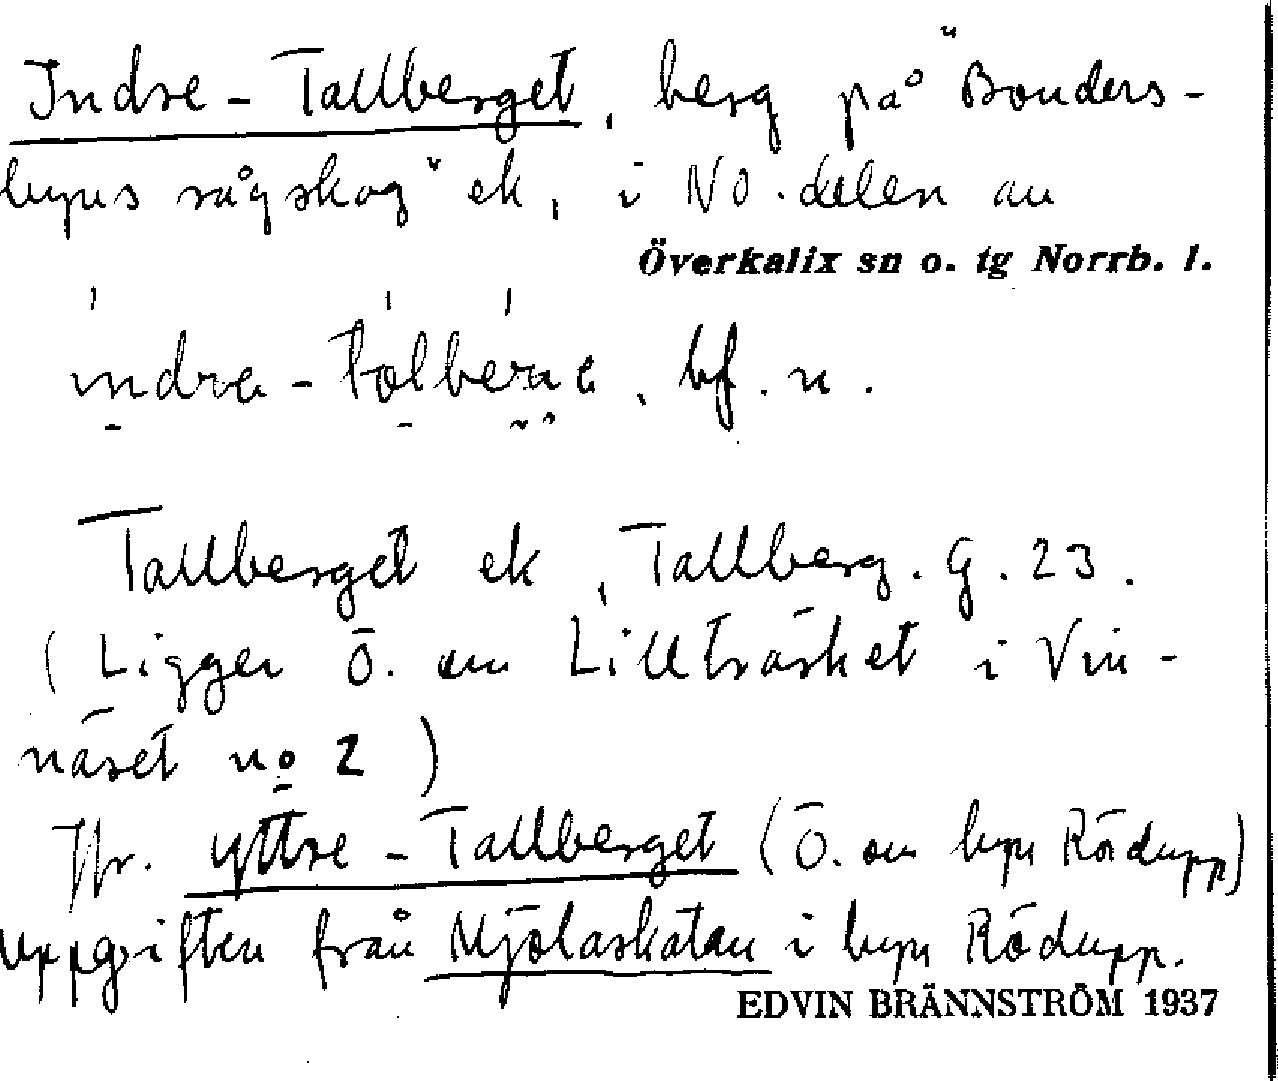 Indre-Tallberget, berg på "Bonders-
byns sågskog" ek, i NO.delen av
Överkalix sn o. tg Norrb. l.
bf. n.
Tallberget ek, Tallberg. G. 23.
(Ligger Ö. om Lillträsket i Vin-
näset no 2)
Jfr. Yttre-Tallberget (Ö. om byn Rödupp)
Uppgiften från Mjölaskatan i byn Rödupp.
EDVIN BRÄNNSTRÖM 1937